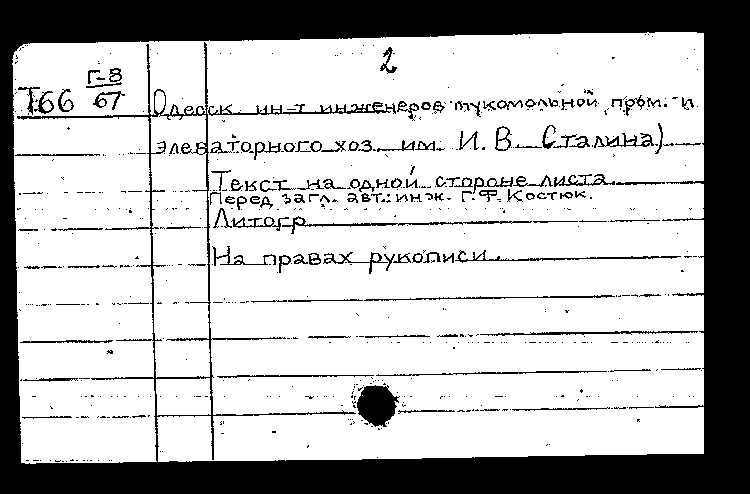 2
Г-8
Т66 67
Одесск. ин-т инженеров мукомольной пром. и
элеваторного хоз. им. И. В. Сталина)
Текст на одной стороне листа.
Перед загл. авт.: инж. Г. Ф. Костюк.
Литогр.
На правах рукописи.